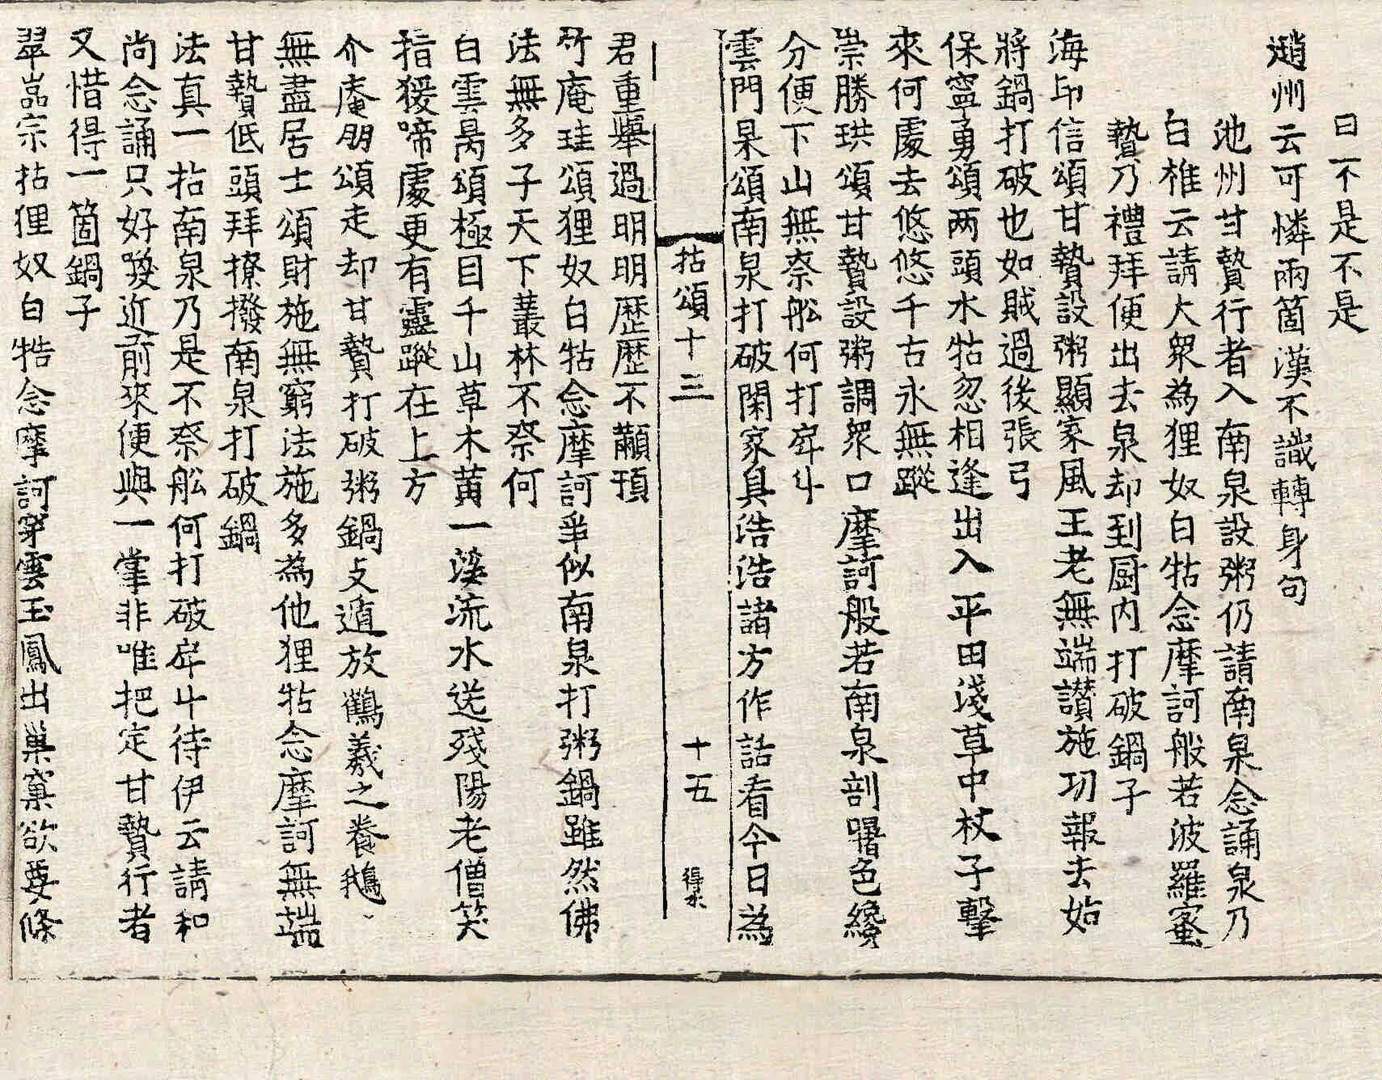 曰不是不是
趙州云可憐兩箇漢不識轉身句
池州甘贄行者入南泉設粥仍請南泉念誦泉乃
白椎云請大衆為狸奴白牯念摩訶般若波羅蜜
贄乃禮拜便出去泉却到厨内打破鍋子
海印信頌甘贄設粥顯家風王老無端讃施功報去始
將鍋打破也如賊過後張弓
保寧勇頌两頭水牯忽相逢出入平田淺草中杖子擊
來何處去悠悠千古永無蹤
崇勝珙頌甘贄設粥調衆口摩訶般若南泉剖曙色纔
分便下山無奈船何打戽斗
雲門杲頌南泉打破閑家具浩浩諸方作話看今日為
拈頌十三 十五 得水
君重舉過明明歷歷不顢頇
竹庵珪頌狸奴白牯念摩訶爭似南泉打粥鍋雖然佛
法無多子天下叢林不奈何
白雲昺頌極目千山草木黃一溪流水送殘陽老僧笑
指猨啼處更有靈蹤在上方
介庵朋頌走却甘贄打破粥鍋支遁放鶴羲之養鵝
無盡居士頌財施無窮法施多為他狸牯念摩訶無端
甘贄低頭拜撩撥南泉打破鍋
法真一拈南泉乃是不奈船何打破戽斗待伊云請和
尚念誦只好喚近前來便與一掌非唯把定甘贄行者
又惜得一箇鍋子
翠嵓宗拈狸奴白牯念摩訶穿雲玉鳳出巢窠欲要條